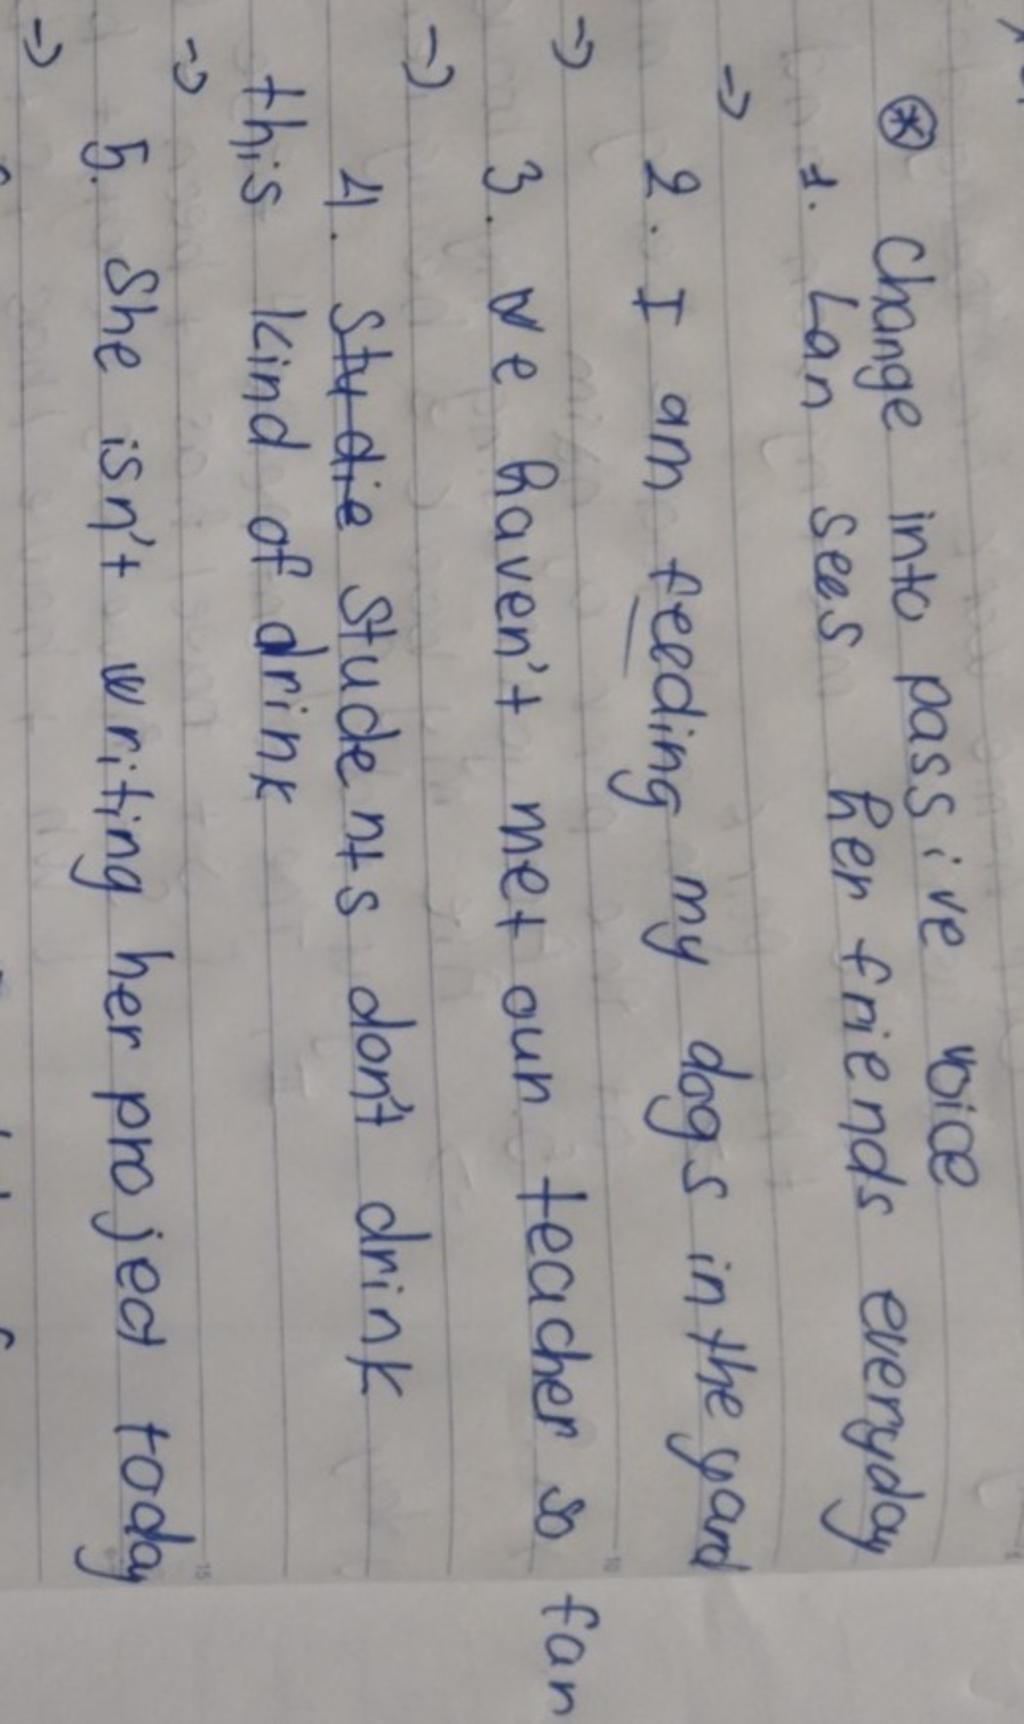 ⊛ Change into passive voice
1. Lan sees her friends everyday
=>
2. I am feeding my dogs in the yard
=>
3. We haven't met our teacher so far
=>
4. Studie Students don't drink
this kind of drink
=>
5. She isn't writing her project today
=>